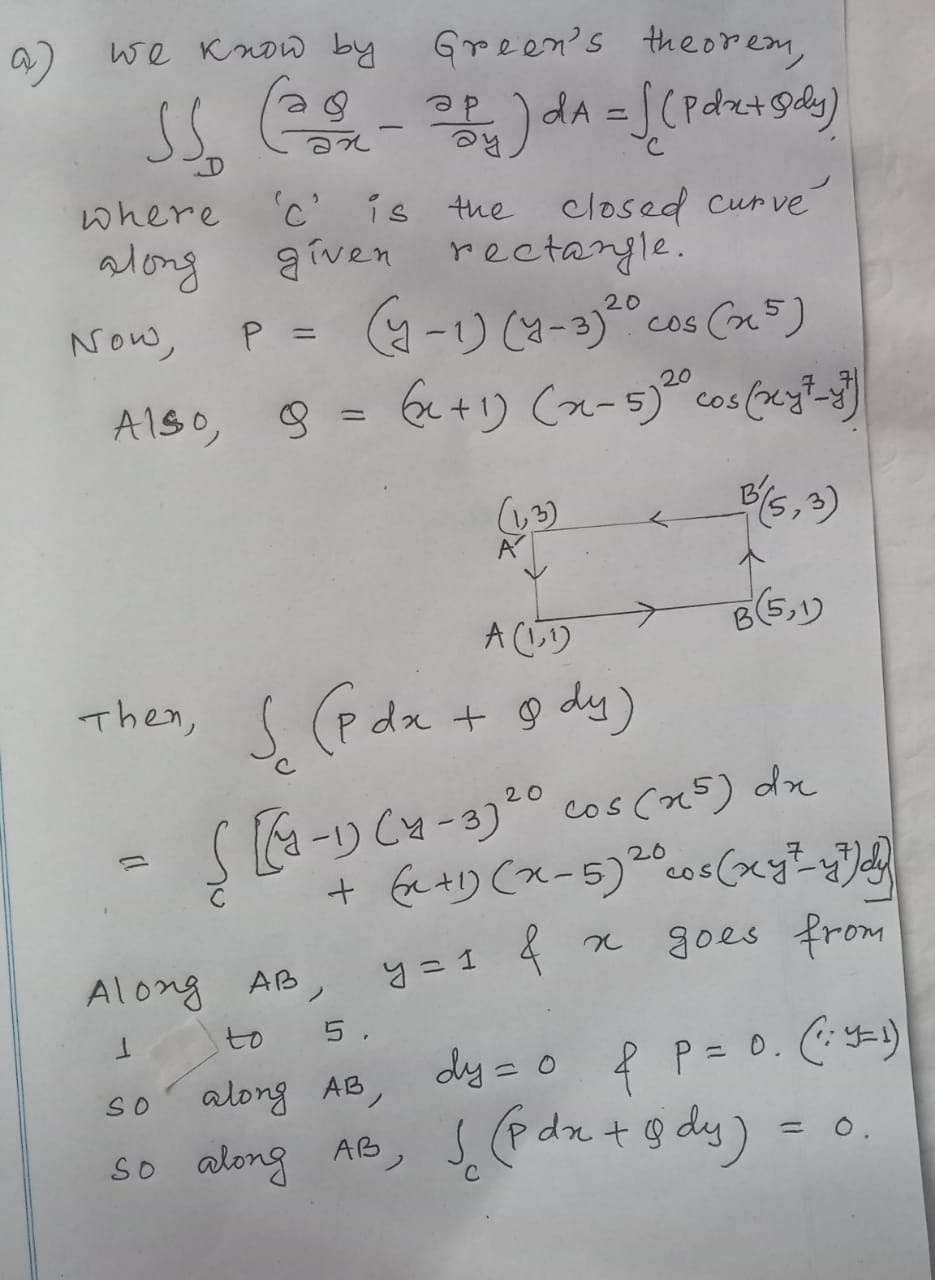 a) We know by Green's theorem,
∬_D (∂Q/∂x − ∂P/∂y) dA = ∫_C (Pdx + Qdy),
where 'C' is the closed curve
along given rectangle.
Now, P = (y−1) (y−3)^20 cos(x^5)
Also, Q = (x+1) (x−5)^20 cos(xy^7−y^7).
(1,3) B'(5,3)
A'
A(1,1) B(5,1)
Then, ∫_C (P dx + Q dy)
= ∫_C [(y−1) (y−3)^20 cos(x^5) dx
+ (x+1) (x−5)^20 cos(xy^7−y^7)dy]
Along AB, y=1 & x goes from
1 to 5.
so along AB, dy=0 & P=0. (∵ y=1)
so along AB, ∫_C (P dx + Q dy) = 0.